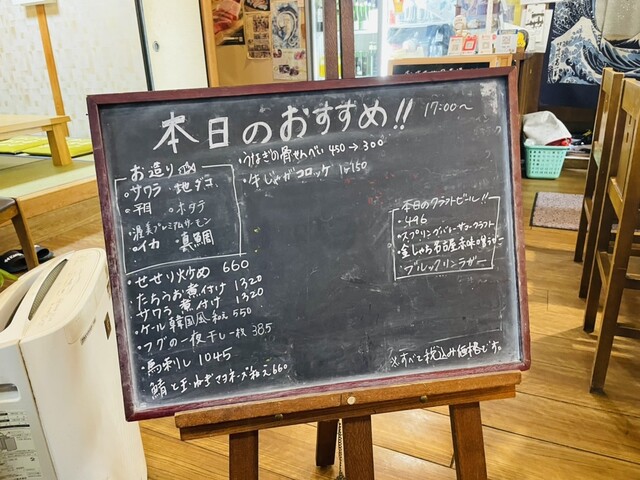 本日のおすすめ!!
17:00〜
お造り
・サワラ 地ダコ
・平目 ホタテ
・渥美プレミアムサーモン
・イカ 真鯛
・うなぎの骨せんべい 450→300
・牛じゃがコロッケ 1ヶ150
本日のクラフトビール!!
・496
・スプリングバレーサマークラフト
・金しゃち名古屋赤味噌ラガー
・ブルックリンラガー
・せせり炒め 660
たちうお煮付け 1320
サワラ 煮付け 1320
・ケール韓国風和え 550
・フグの一夜干し一枚 385
・馬刺し 1045
鯖と玉ねぎマヨネーズ和え 660
※すべて税込み価格です。